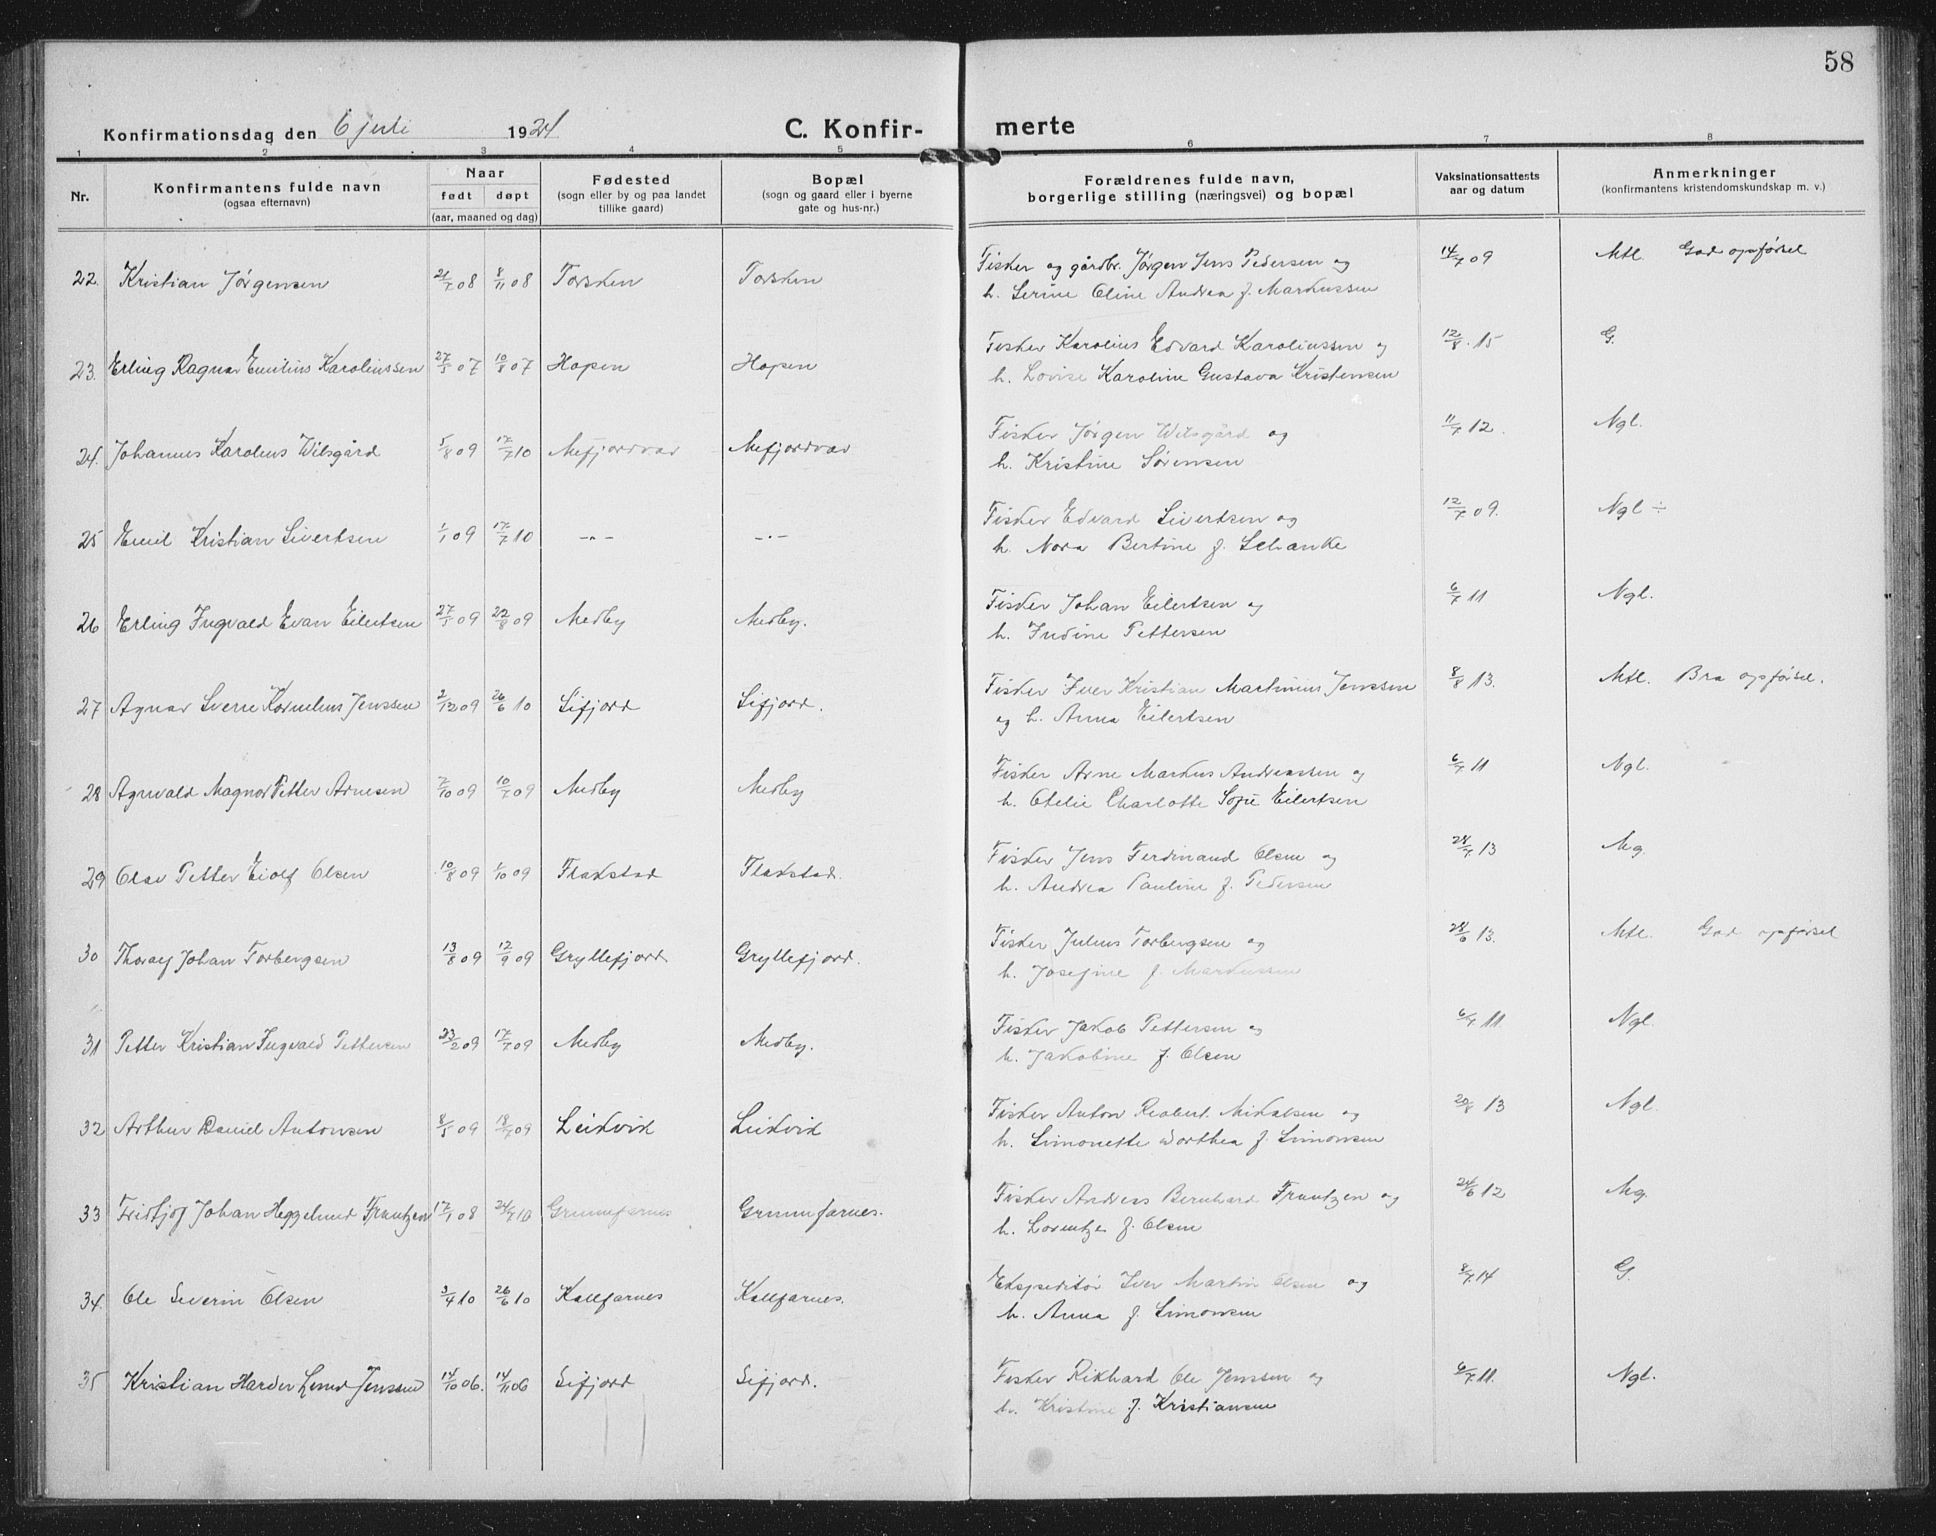 58
Konfirmationsdag den 6 juli 1924 C. Konfirmerte
1 2 3 4 5 6 7 8
Nr. Konfirmantens fulde navn (ogsaa efternavn) Naar født døpt (aar, maaned og dag) Fødested (sogn eller by og paa landet tillike gaard) Bopæl (sogn og gaard eller i byerne gate og hus-nr.) Forældrenes fulde navn, borgerlige stilling (næringsvei) og bopæl Vaksinationsattests aar og datum Anmerkninger (konfirmantens kristendomskundskap m. v.)
22. Kristian Jørgensen 21/7 08 8/11 08 Torsken Torsken Fisker og gårdbr. Jørgen Jens Pedersen og 14/7 09 Mtl. God opførsel
h. Serine Oline Andrea f. Markussen
23. Erling Ragnar Emilius Karoliussen 27/5 07 10/8 07 Hopen Hopen Fisker Karolius Edvard Karoliussen og 12/8 15 G.
h. Lovise Karoline Gustava Kristensen
24. Johannes Karolius Wilsgård 5/8 09 17/7 10 Mefjordvær Mefjordvær Fisker Jørgen Wilsgård og 11/7 12. Ngl.
h. Kristine Sørensen
25 Emil Kristian Sivertsen 1/1 09 17/7 10 -"- -"- Fisker Edvard Sivertsen og 12/7 09. Ngl ÷
h. Nora Bertine f. Schanke
26 Erling Ingvald Evan Eilertsen 27/5 09 22/8 09 Medby Medby. Fisker Johan Eilertsen og 6/7 11 Ngl.
h. Indine Pettersen
27 Agnar Sverre Kornelius Jenssen 2/12 09 26/6 10 Sifjord Sifjord. Fisker Iver Kristian Martinius Jenssen 8/8 13. Mtl. Bra opførsel.
og h. Anna Eilertsen
28 Agnvald Magnor Petter Arnesen 7/10 09 10/7 09 Medby Medby. Fisker Arne Markus Andreassen og 6/7 11 Ngl.
h. Otelie Charlotte Sofie Eilertsen
29 Olav Petter Eiolf Olsen 10/8 09 1/10 09 Flakstad Flakstad. Fisker Jens Ferdinand Olsen og 24/7 13 Mg.
h. Andrea Pauline f. Pedersen
30 Thoralf Johan Torbergsen 13/8 09 12/9 09 Gryllefjord Gryllefjord. Fisker Julius Torbergsen og 28/6 13. Mtl. God opførsel
h. Josefine f. Markussen
31 Petter Kristian Ingvald Pettersen 23/2 09 17/7 09 Medby Medby. Fisker Jakob Pettersen og 6/7 11. Ngl.
h. Jakobine f. Olsen
32 Arthur Daniel Antonsen 8/5 09 18/7 09 Leikvik Leikvik Fisker Anton Reobert. Mikalsen og 20/8 13 Ngl.
h. Simonette Dorthea f. Simonsen
33 Fritjof Johan Heggelund Frantzen 17/1 08 24/7 10 Grunnfarnes Grunnfarnes. Fisker Andreas Bernhard Frantzen og 24/6 12 Mg.
h. Lorentze f. Olsen
34. Ole Severin Olsen 3/4 10 26/6 10 Kalfarnes Kalfarnes. Ekspeditør Iver Martin Olsen og 8/7 14 G.
h. Anna f. Simonsen
35 Kristian Harder Lund Jenssen 14/10 06. 14/11 06 Sifjord Sifjord. Fisker Rikhard Ole Jenssen og 6/7 11. Ngl.
h. Kristine f. Kristiansen